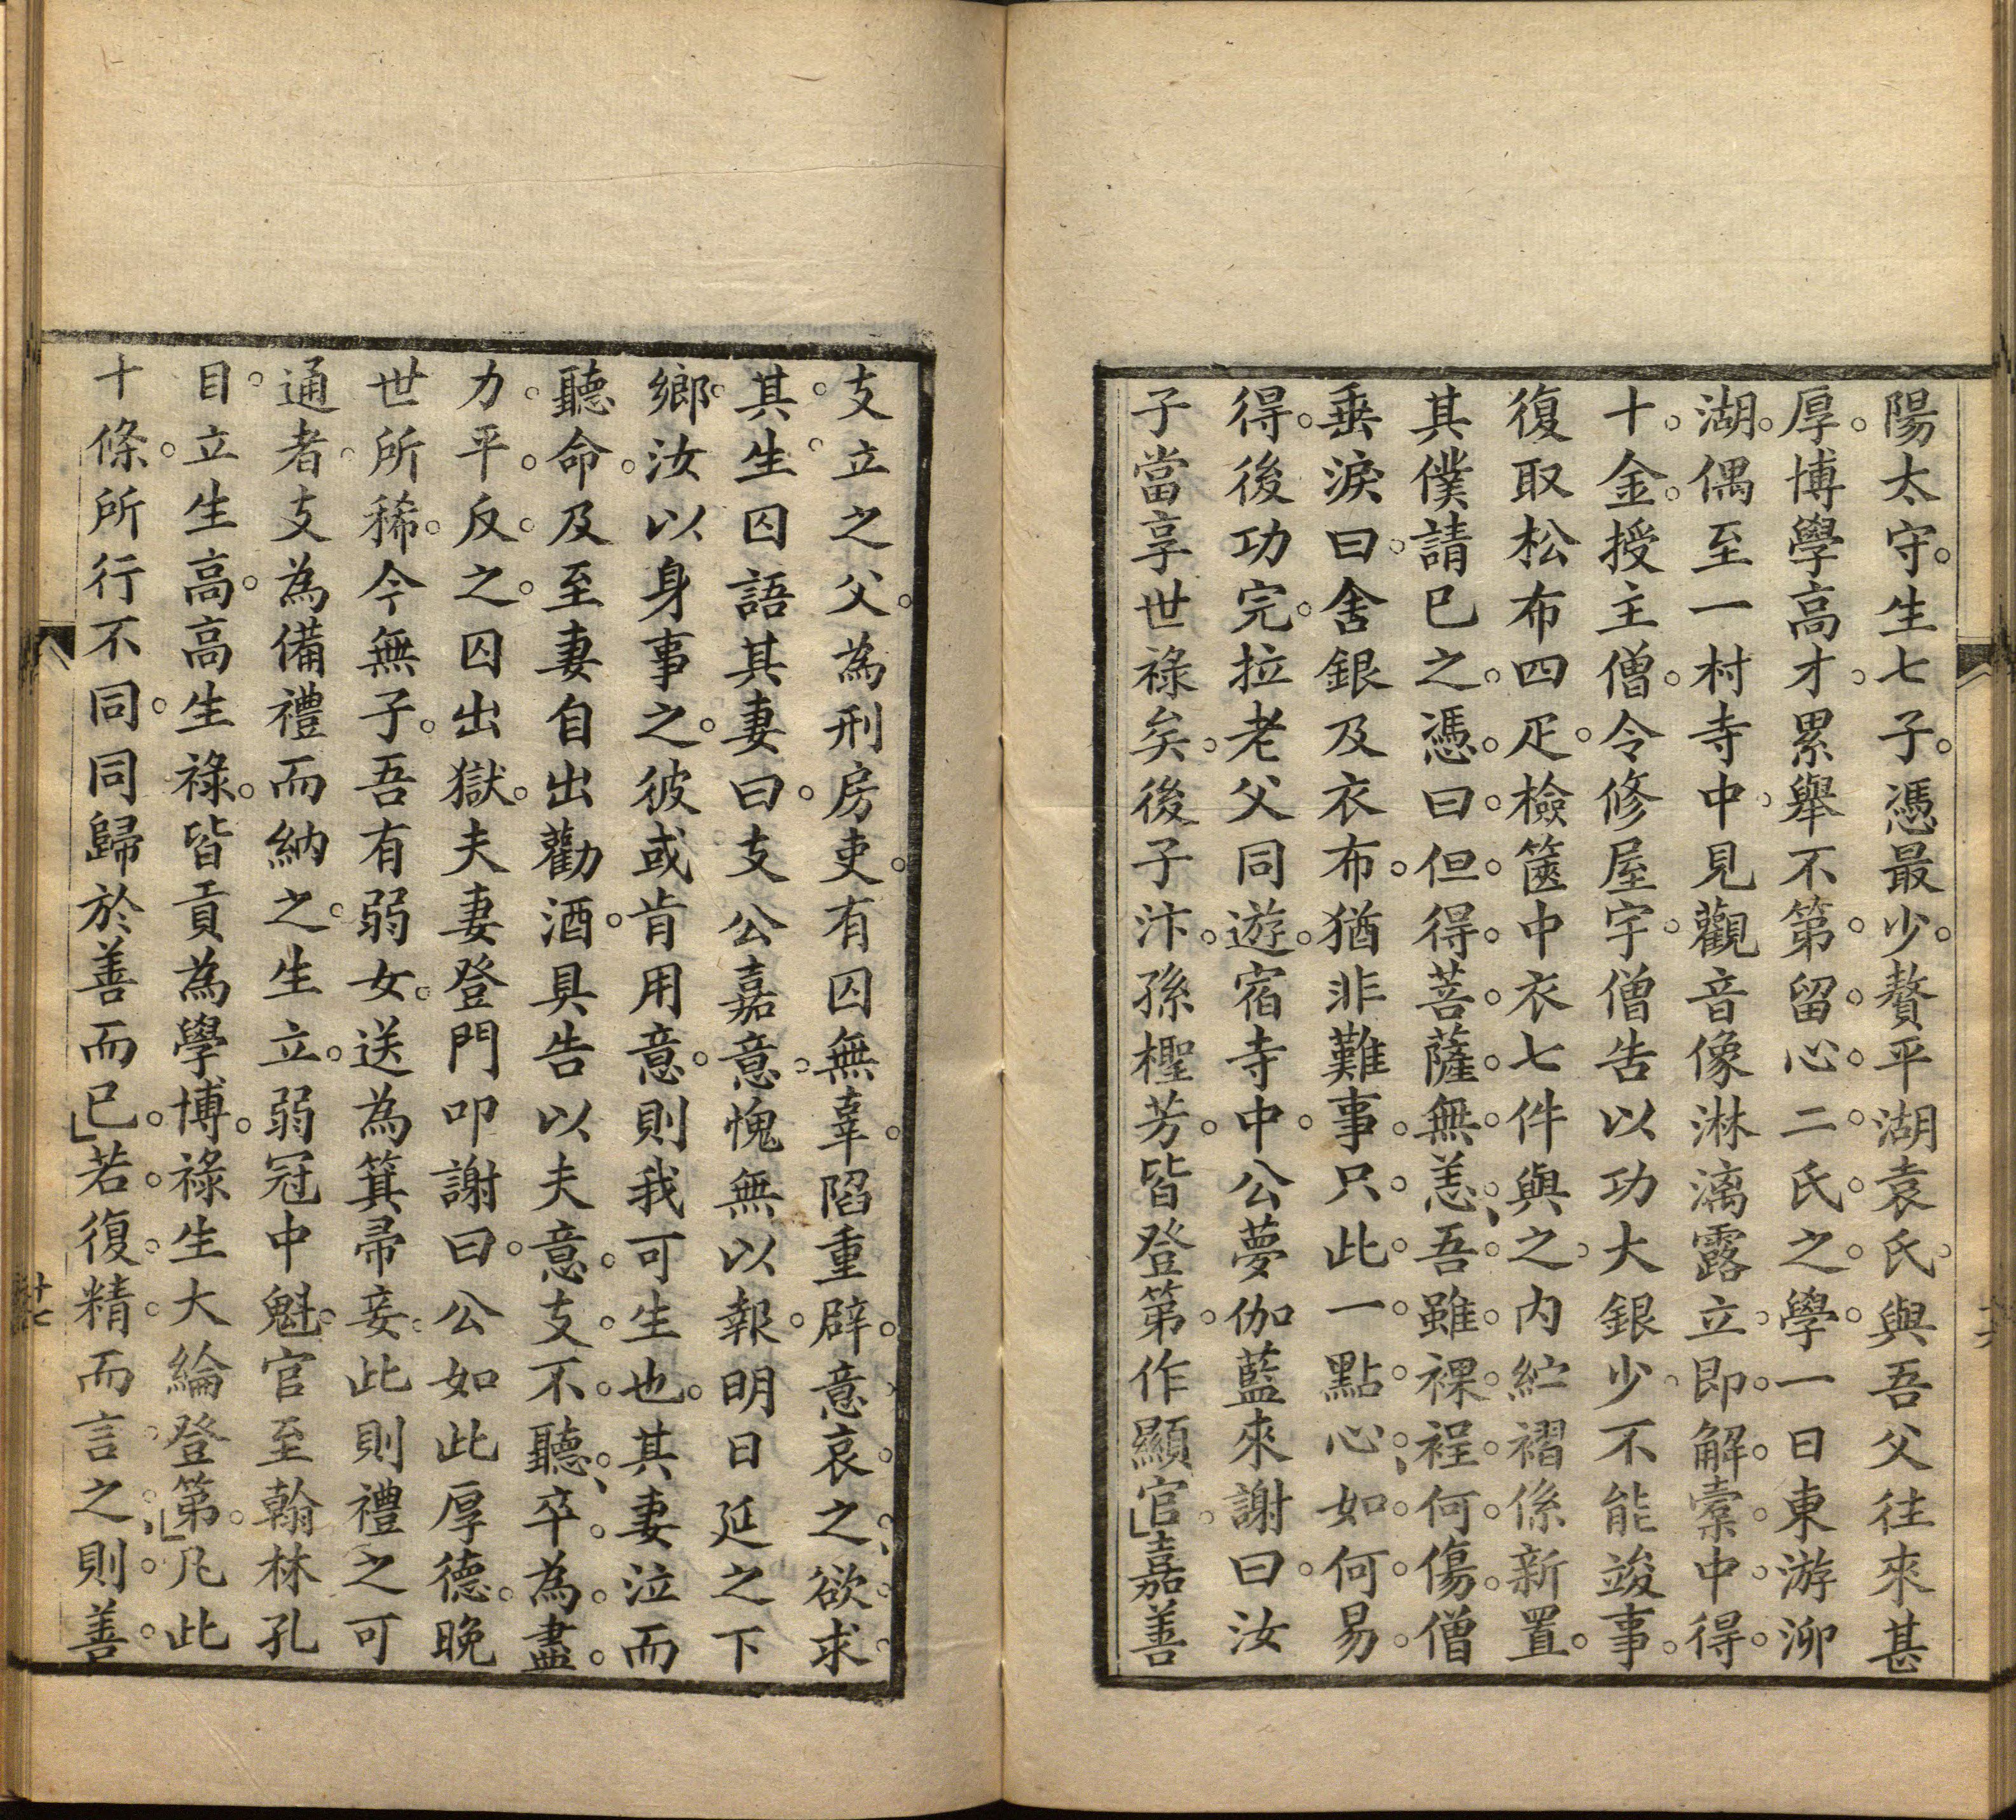 陽太守生七子憑最少贅平湖袁氏與吾父往來甚
厚博學高才累舉不第留心二氏之學一日東游泖
湖偶至一村寺中見觀音像淋漓露立即解橐中得
十金授主僧令修屋宇僧告以功大銀少不能竣事
復取松布四疋檢篋中衣七件與之內紵褶係新置
其僕請已之憑曰但得菩薩無恙吾雖裸裎何傷僧
垂淚曰舍銀及衣布猶非難事只此一點心如何易
得後功完拉老父同遊宿寺中公夢伽藍來謝曰汝
子當享世祿矣後子汴孫檉芳皆登第作顯官嘉善
支立之父為刑房吏有囚無辜陷重辟意哀之欲求
其生囚語其妻曰支公嘉意愧無以報明日延之下
鄉汝以身事之彼或肯用意則我可生也其妻泣而
聽命及至妻自出勸酒具告以夫意支不聽卒為盡
力平反之囚出獄夫妻登門叩謝曰公如此厚德晚
世所稀今無子吾有弱女送為箕帚妾此則禮之可
通者支為備禮而納之生立弱冠中魁官至翰林孔
目立生高高生祿皆貢為學博祿生大綸登第凡此
十條所行不同同歸於善而已若復精而言之則善
十七